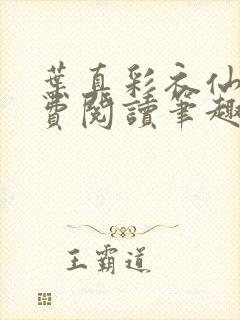 葉真彩衣仙
費閱讀筆趣
王霸道